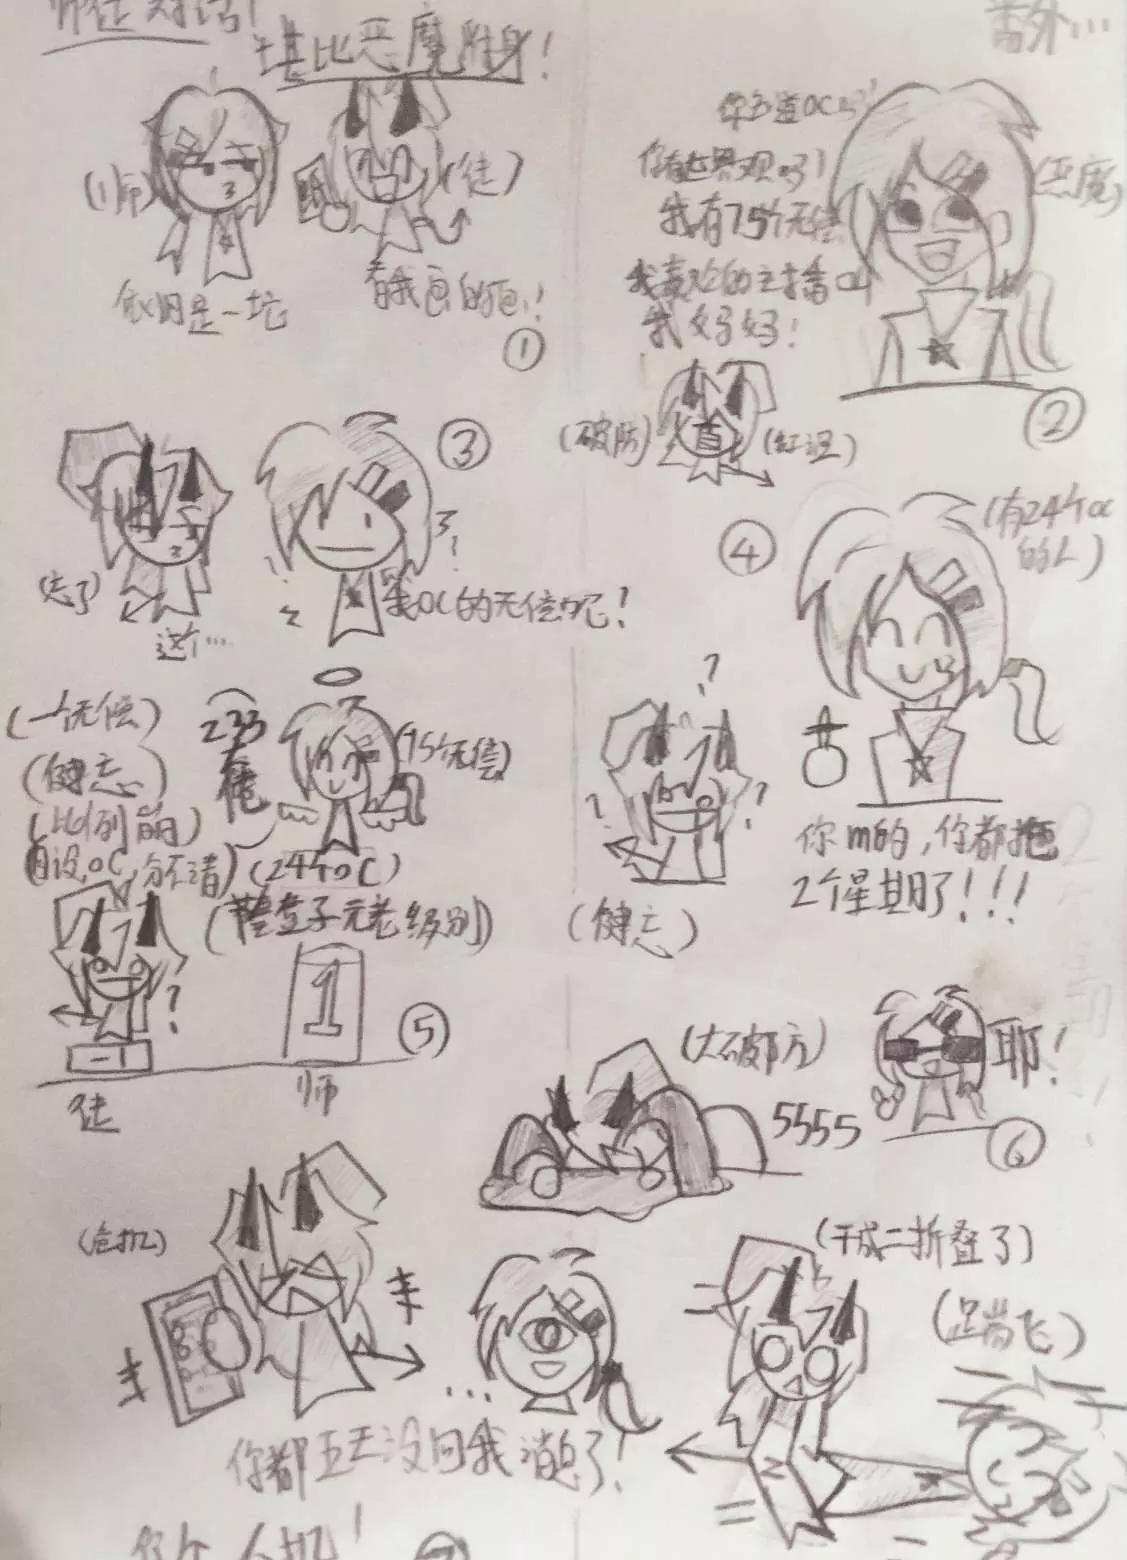 师徒对话!
堪比恶魔附身!
番外…
(师)
(徒)
依旧是一坨
看我画的画!
①
你知道OC吗?
你有世界观吗?
我有75个无偿
我喜欢的主播
我妈妈!
(恶魔)
②
(破防)
(红温)
③
(忘了)
这个…
我OC的无偿呢!
④
(有24个oc的人)
你m的,你都拖
2个星期了!!!
(健忘)
(一个无偿)
(健忘)
(比例崩)
自设,OC,分不清)
233
(75个无偿)
(24个OC)
元老级别)
1
⑤
徒
师
(大破防)
5555
耶!
⑥
(危机)
…
你都五天没回我消息了!
(干成二折叠了)
(踹飞)
你个人机!
⑦